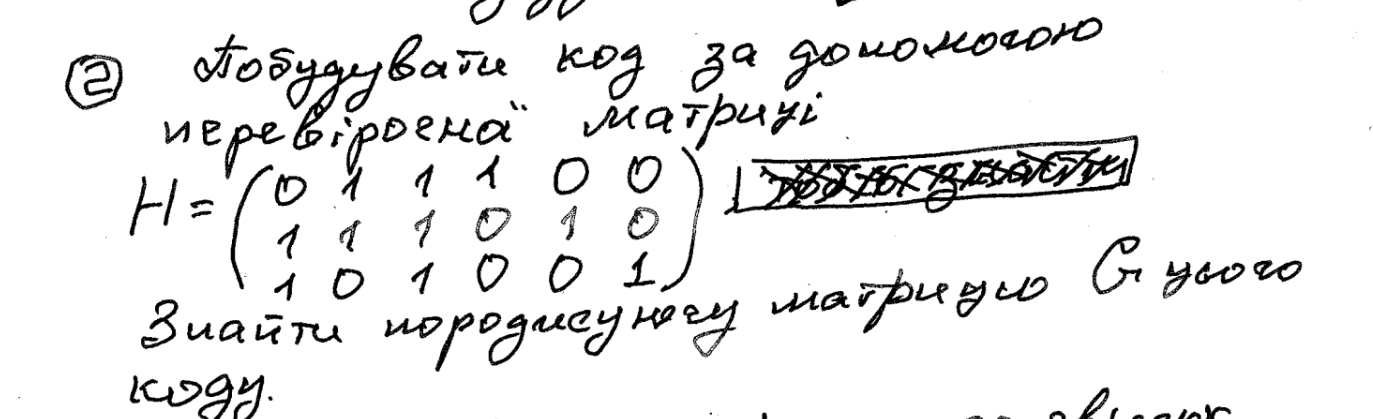 ② Побудувати код за допомогою
перевірочної матриці
H = ( 0 1 1 1 0 0
1 1 1 0 1 0
1 0 1 0 0 1 )
Знайти породжуючу матрицю G цього
коду.